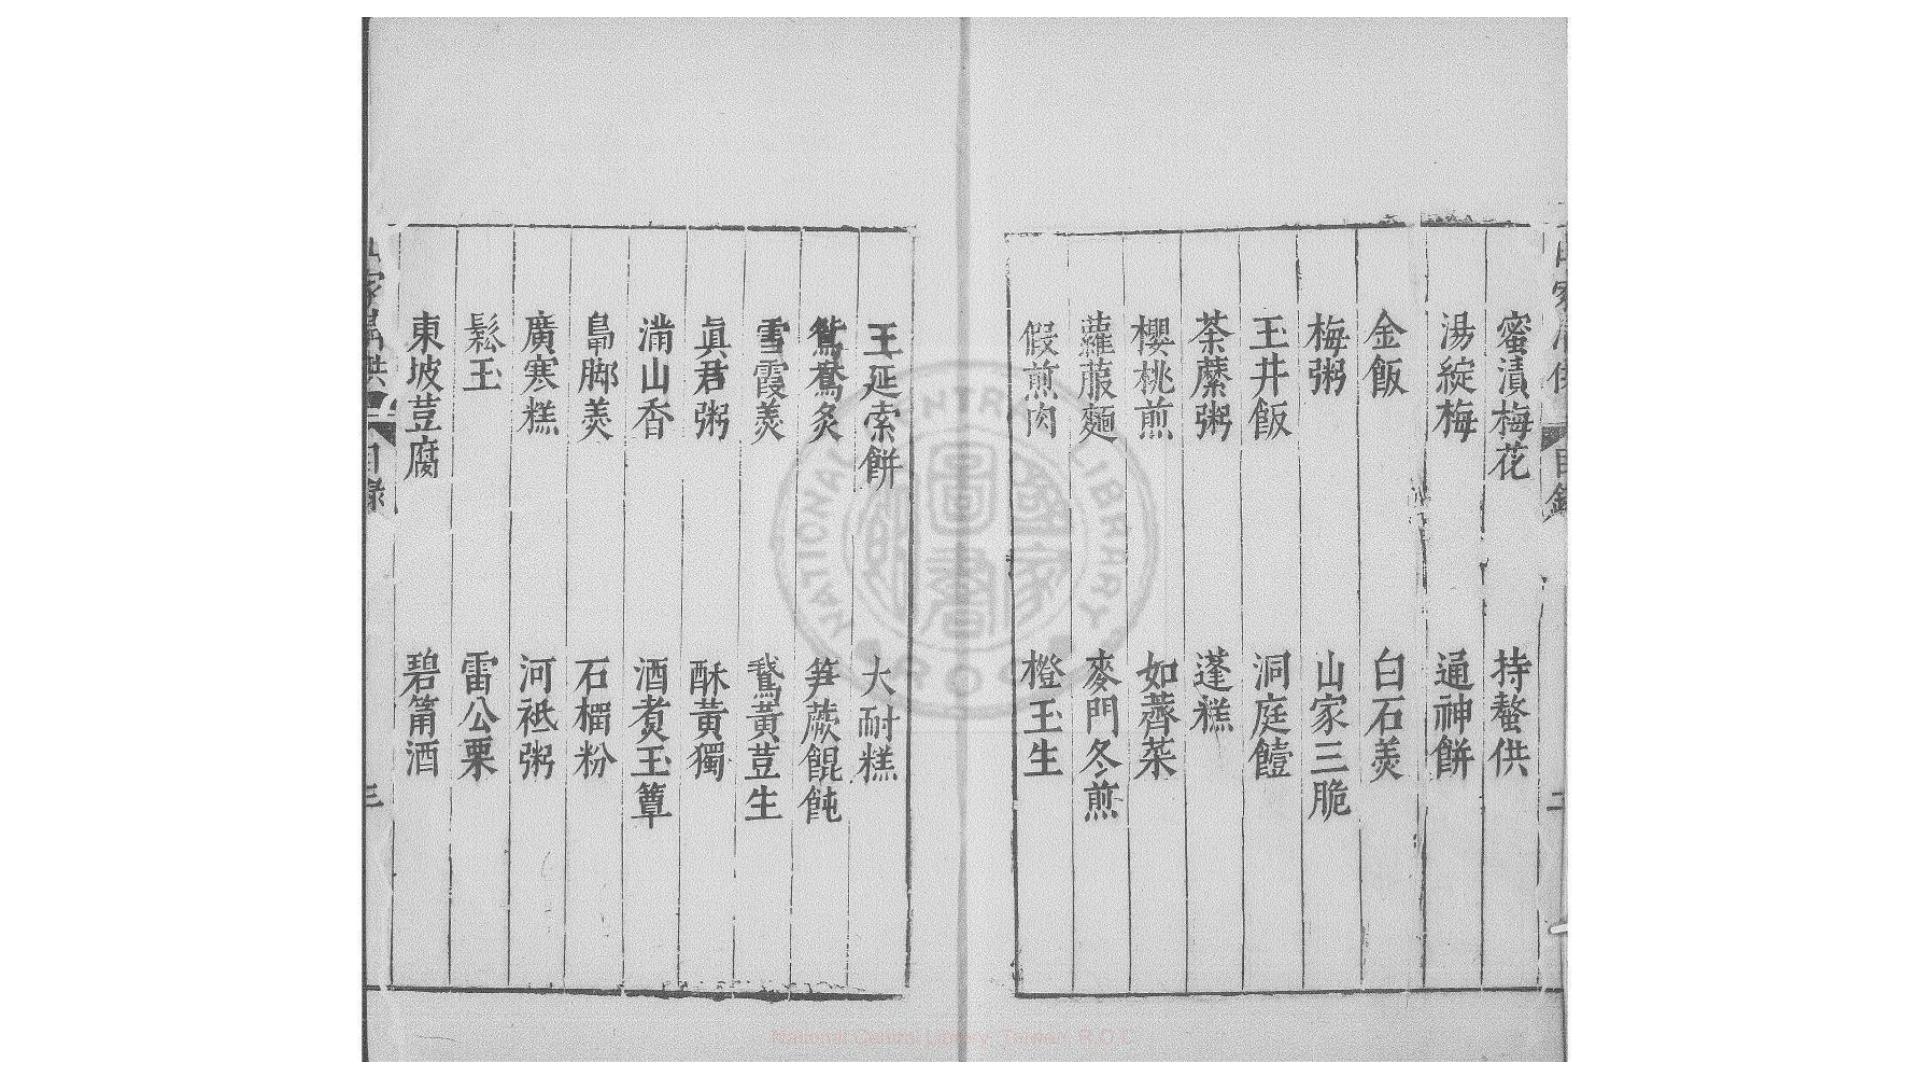 蜜漬梅花 持螯供
湯綻梅 通神餅
金飯 白石羮
梅粥 山家三脆
玉井飯 洞庭饐
荼蘼粥 蓬糕
櫻桃煎 如薺菜
蘿菔麵 麥門冬煎
假煎肉 橙玉生
玉延索餅 大耐糕
鴛鴦炙 笋蕨餛飩
雪霞羮 鵞黃荳生
眞君粥 酥黃獨
滿山香 酒煑玉蕈
鳧脚羮 石榴粉
廣寒糕 河祗粥
鬆玉 雷公栗
東坡荳腐 碧筩酒
目錄
三
NATIONAL CENTRAL LIBRARY
R O C
國家圖書館
National Central Library, Taiwan, R.O.C